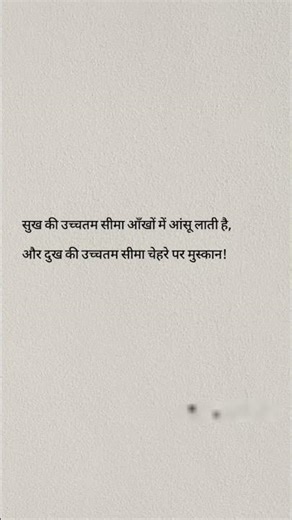 सुख की उच्चतम सीमा आँखों में आंसू लाती है,
और दुख की उच्चतम सीमा चेहरे पर मुस्कान!